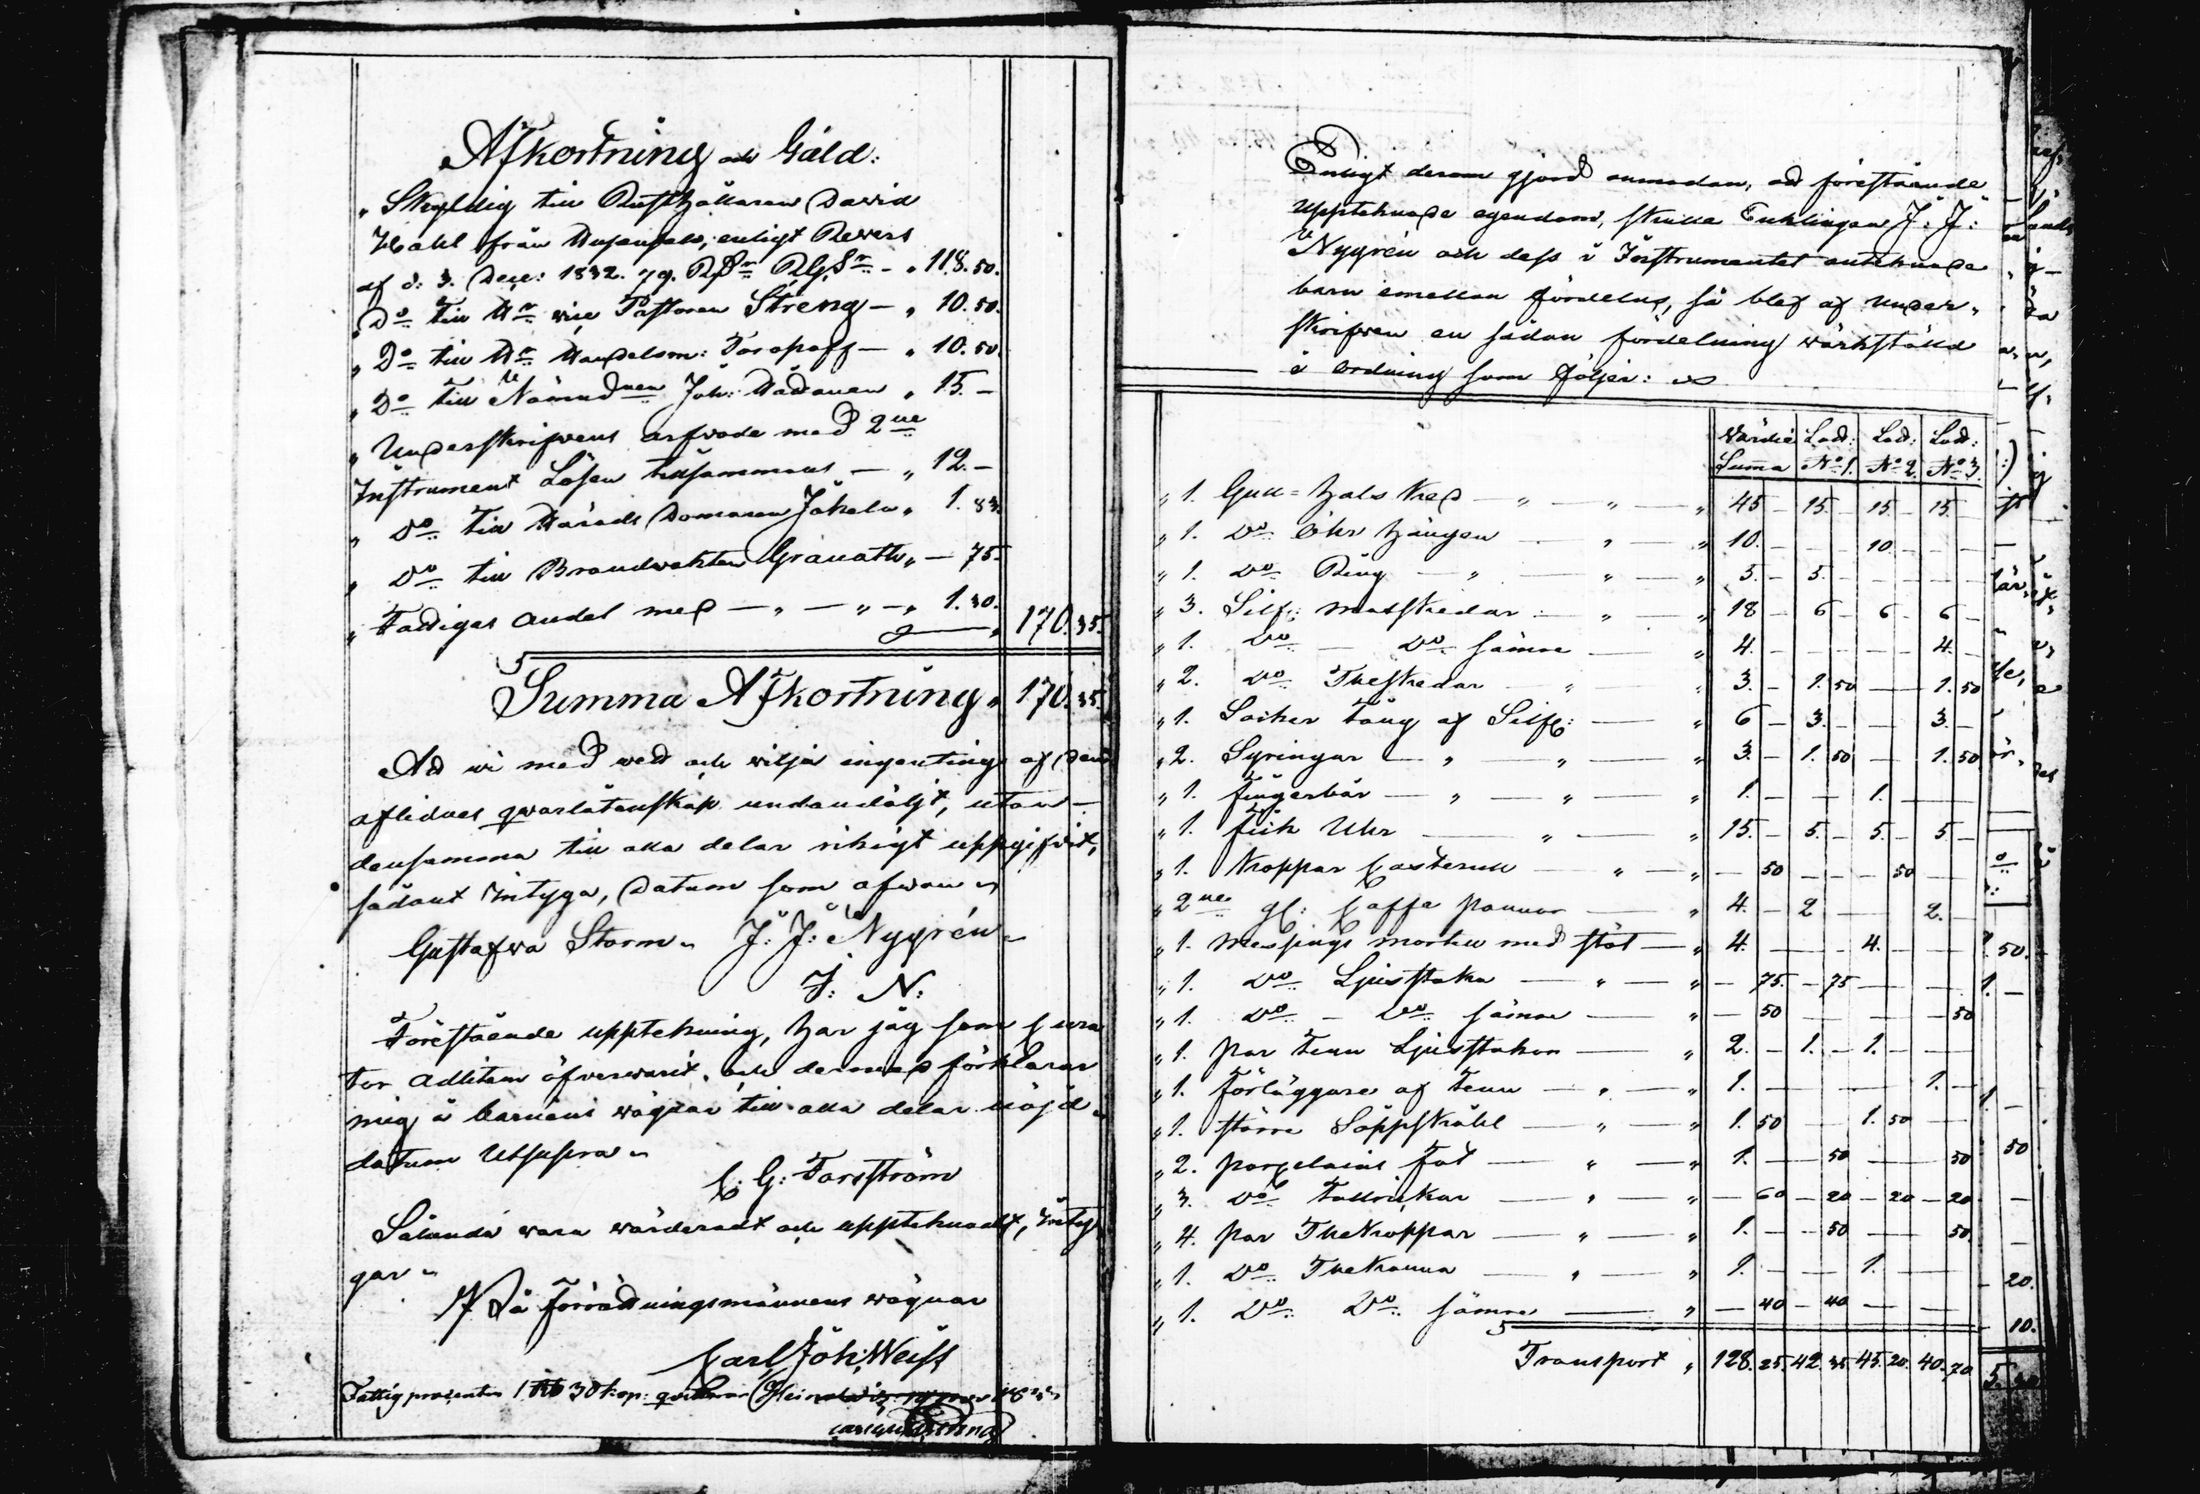 Afkortning och Gäld:
„ Skyldig till Rusthållaren David
Hahl från enligt Revers
af d: 3. Dece: 1832. 79. „ 118. 50.
„ Do till Hr vice Pastoren Streng — „ 10. 50.
„ Do till Hr Handelsm: Tarapoff — „ 10. 50.
„ Do till Nämndmen Joh: „ 15. —
„ Underskrifvens arfvode med 2ne
Instrument Lösen tillsammans — „ 12. —
„ Do till Härads Domaren „ 1. 83.
„ Do till Brandvakten Granath „ — 75.
„ Fattigas andel med — „ — „ — „ 1. 30.
„ 170. 35.
Summa Afkortning „ 170. 35.
At vi med vett och vilja ingenting af den
aflidnes qvarlåtenskap undandöljt, utan
densamma till alla delar riktigt uppgifvit,
sådant Intyga, Datum som ofvan „
Gustafva Storm „ J: J: Nygrén „
J: N:
Föreståénde upptekning, har jag som Cura
tor adlitem öfvervarit, och dermed förklarar
mig å barnens vägnar till alla delar nöjd „
datum Utsupra „
C: G: Forsström
Sålunda vara värderadt och upptecknadt, Inty
gar „
På Förrättningsmännens vägnar
Carl Joh: Weist
Fattig procenten 1 30 kop: qvitteras
Enligt derom gjord anmodan, at föreståénde
upptecknade egendom, skulle Enklingen J: J:
Nygrén och dess i Instrumentet antecknade
barn emellan fördelas, så blef af under-
skrifven en sådan fördelning värkstäld
i ordning som följer:
Värdie Lott: Lott: Lott:
Summa No 1. No 2. No 3.
„ 1. Gull-halsked — „ — „ — „ 45 — 15. — 15 — 15. —
„ 1. Do Öhr hängen — „ — „ 10. — — — 10. — — —
„ 1. Do Ring — „ — „ — „ 3. — 3. — — — — —
„ 3. Silf: matskedar — „ — „ 18 — 6 — 6 — 6 —
„ 1. Do — Do sämre — „ 4. — — — — — 4. —
„ 2. Do Theskedar — „ — „ 3. — 1. 50 — — 1. 50
„ 1. Socker tång af Silf: — „ 6 — 3. — — — 3. —
„ 2. Syringar — „ — „ — „ 3. — 1. 50 — — 1. 50
„ 1. fingerbår — „ — „ — „ 1. — — — 1. — — —
„ 1. fick Uhr — „ — „ 15. — 5. — 5. — 5 —
„ 1. Koppar Casterull — „ — „ — 50 — — — 50 — —
„ 2ne gl: Caffe pannor — „ 4. — 2 — — — 2. —
„ 1. Messings mortel med stöt — „ 4. — — — 4. — — —
„ 1. Do Ljusstaka — „ — „ — 75. — 75 — — — —
„ 1. Do — Do sämre — „ — 50 — — — — — 50
„ 1. par tenn Ljusstakar — „ 2. — 1. — 1. — — —
„ 1. Förläggare af tenn — „ — „ 1. — — — — — 1. —
„ 1. större Såppskåhl — „ — „ 1. 50 — — 1. 50 — —
„ 2. porcelains fat — „ — „ 1. — — 50 — — — 50
„ 3. Do Tallrickar — „ — „ — 60 — 20 — 20 — 20
„ 4. par Thekoppar — „ — „ 1. — — 50 — — — 50.
„ 1. Do Thekanna — „ — „ 1. — — — 1. — — —
„ 1. Do Do sämre — „ — 40 — 40 — — — —
Transport „ 128. 25. 42. 35. 45. 20. 40. 70